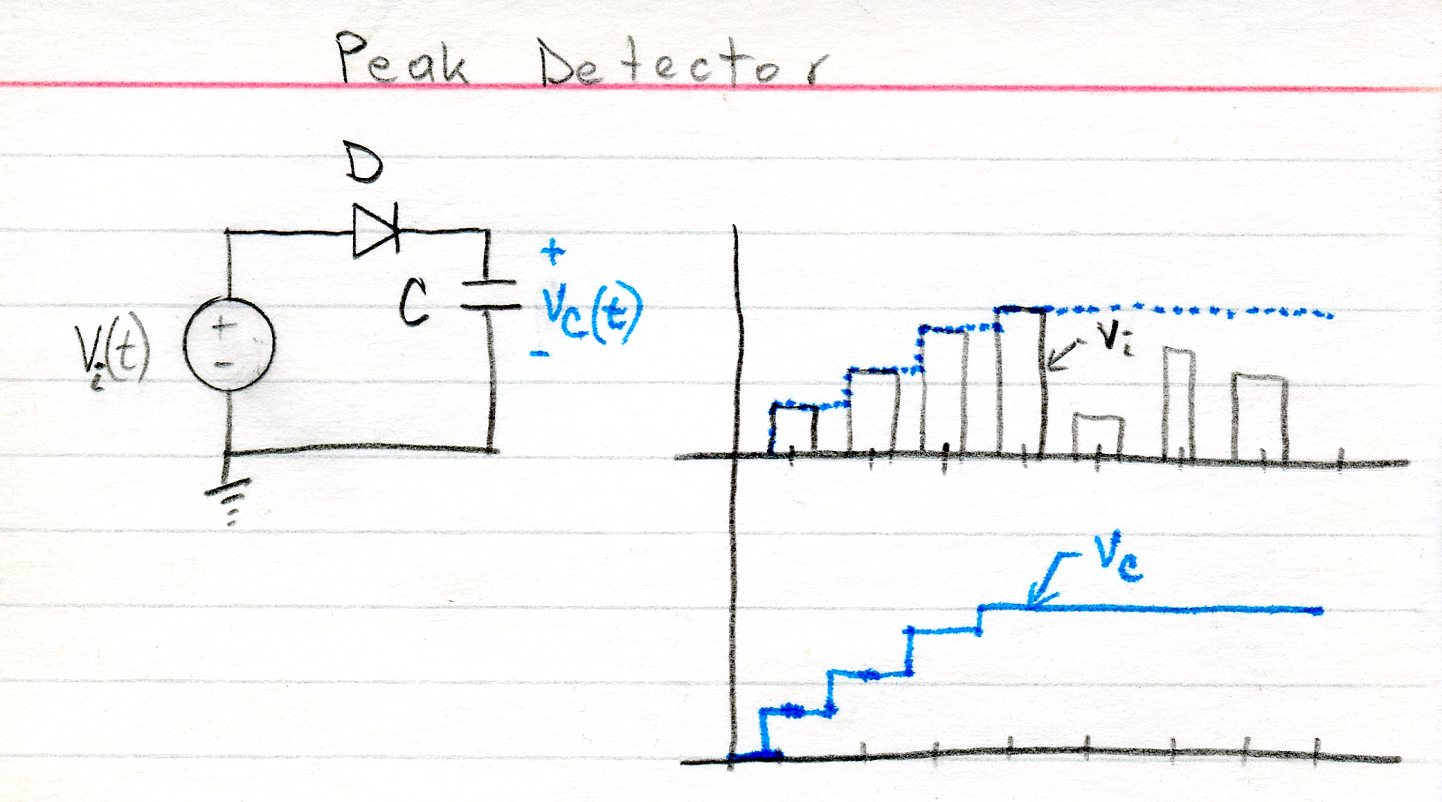 Peak Detector
D
+
C
Vc(t)
Vi(t)
+
-
-
Vi
Vc